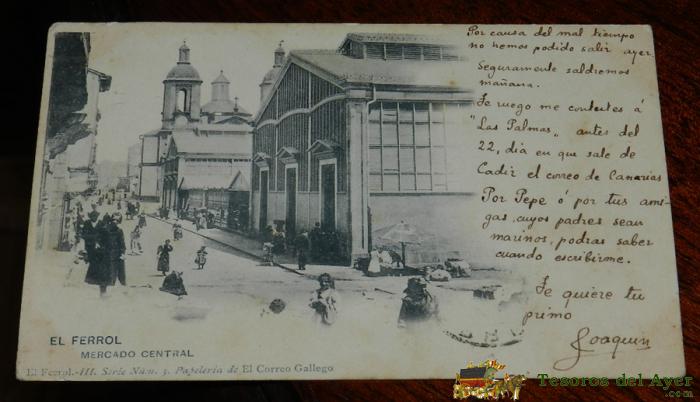 Por causa del mal tiempo
no hemos podido salir ayer.
Seguramente saldremos
mañana.
Te ruego me contestes á
"Las Palmas" antes del
22, dia en que sale de
Cadiz el correo de Canarias
Por Pepe ó por tus ami-
gas, cuyos padres sean
marinos, podras saber
cuando escribirme.
Te quiere tu
primo
Joaquin
EL FERROL
MERCADO CENTRAL
El Ferrol.-III. Serie Núm. 3. Papelería de El Correo Gallego
Tesoros del Ayer
.com